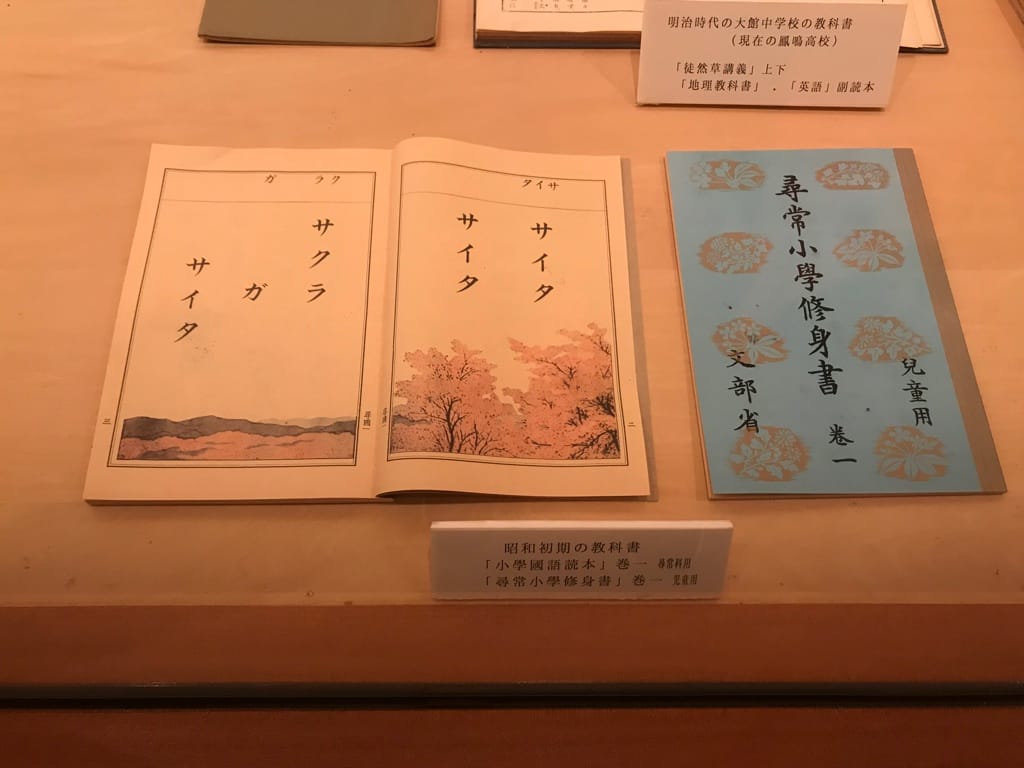 明治時代の大館中学校の教科書
(現在の鳳鳴高校)
「徒然草講義」上下
「地理教科書」.「英語」副読本
サイタ
サイタ
サイタ
二
クラ ガ
サクラ
ガ
サイタ
尋國一
三
尋常小學修身書
卷一
兒童用
文部省
昭和初期の教科書
「小學國語読本」巻一 尋常科用
「尋常小學修身書」巻一 児童用